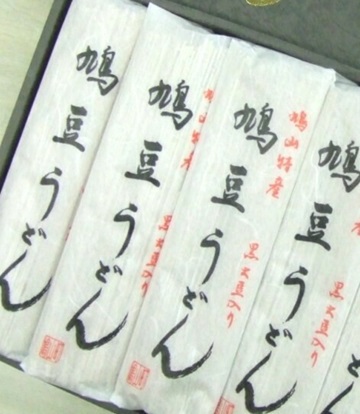 鳩豆うどん
鳩豆うどん
鳩山特産
黒大豆入り
鳩豆うどん
鳩山特産
黒大豆入り
鳩豆うどん
黒大豆入り